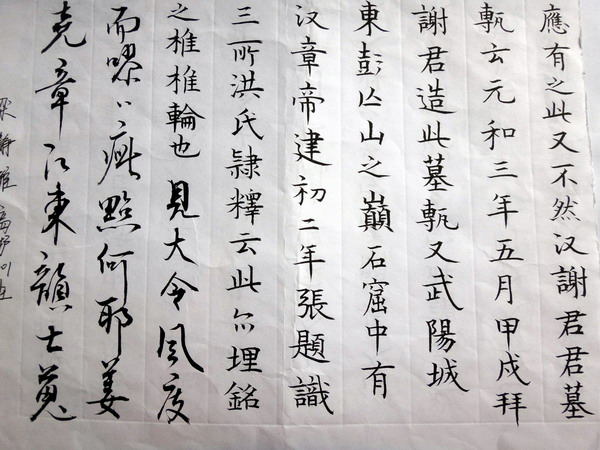 應有之此又不然汉謝君君墓
甎云元和三年五月甲戌拜
謝君造此墓甎又武陽城
東彭亾山之巔石窟中有
汉章帝建初二年張題識
三所洪氏隸釋云此亦埋銘
之椎椎輪也見大令風度
而疵點何耶姜
堯章江東韻士蒐